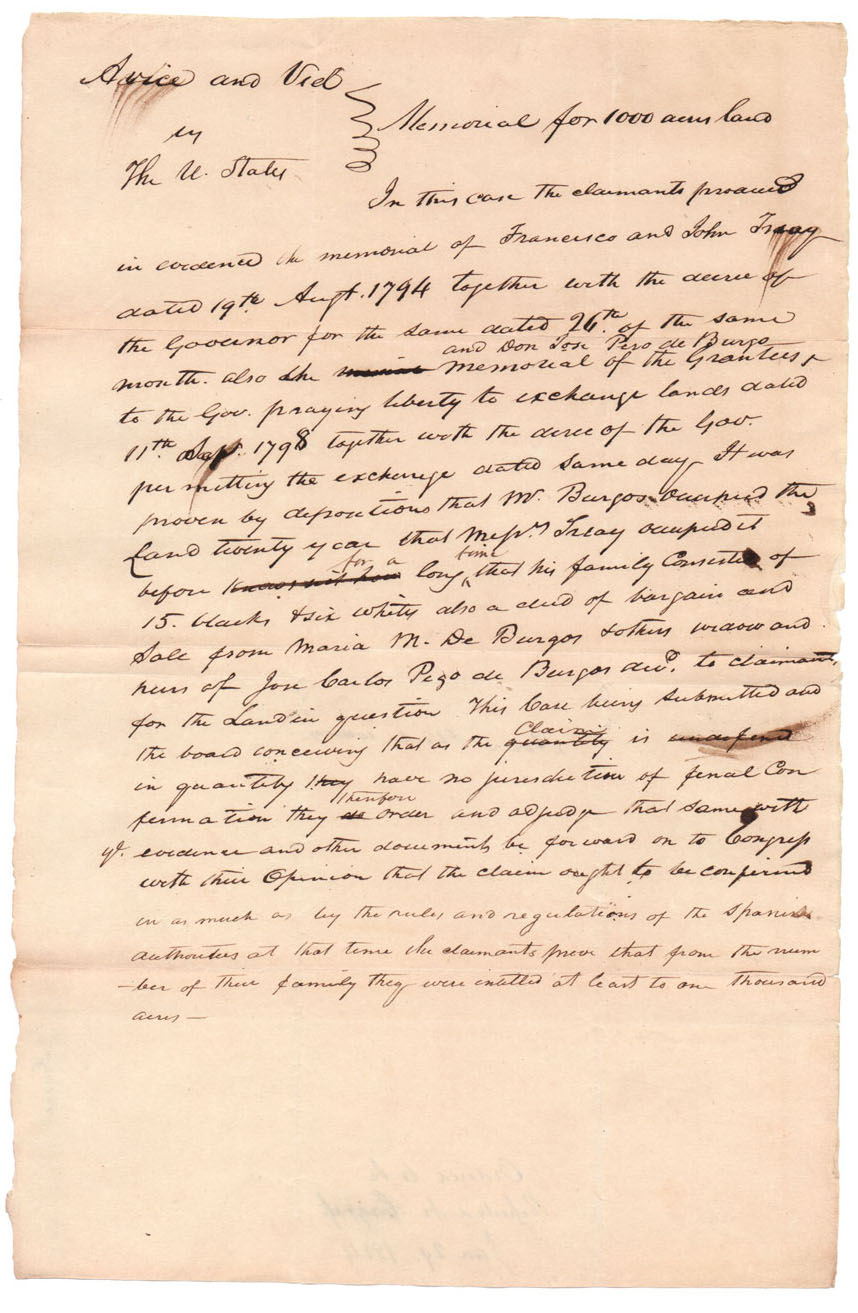 Avice and Viel
vs
The U. States
Memorial for 1000 acres land
In this case the claimants produced
in evidence the memorial of Francisco and John Treay
dated 19th Augt. 1794 together with the decree of
the Governor for the same dated 26th. of the same
and Don Jose Pezo de Burgo
month. also the memorial of the Grantees
to the Gov. praying liberty to exchange lands dated
11th. Sept. 1798 together with the decree of the Gov.
permitting the exchange dated same day. It was
proven by depositions that Mr. Burgos occupied the
Land twenty year that Messrs Treay occupied it
for a time
before long that his family Consisted of
15. blacks & six whites also a deed of bargain and
Sale from Maria M. De Burgos & others widow and
heirs of Jose Carlos Pezo de Burgos decd. to claimants
for the Land in question This Case being submitted and
Claim
the board conceiving that as the quantity is undefined
in quantity they have no jurisdiction of final Con
therefore
fermation they do order and adjudge that same with
ye. evidence and other documents be forward on to Congress
with their Opinion that the claim ought to be confirmed
in as much as by the rules and regulations of the Spanish
authorities at that time the claimants prove that from the num
-ber of their family they were intitled at least to one thousand
acres —